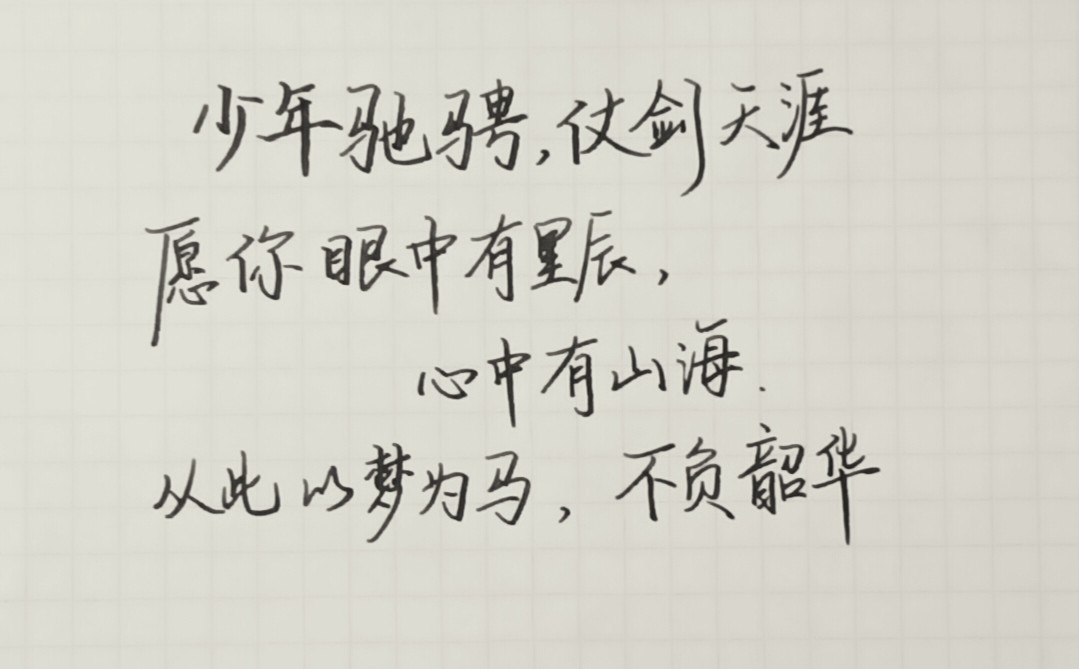 少年驰骋,仗剑天涯
愿你眼中有星辰,
心中有山海.
从此以梦为马,不负韶华